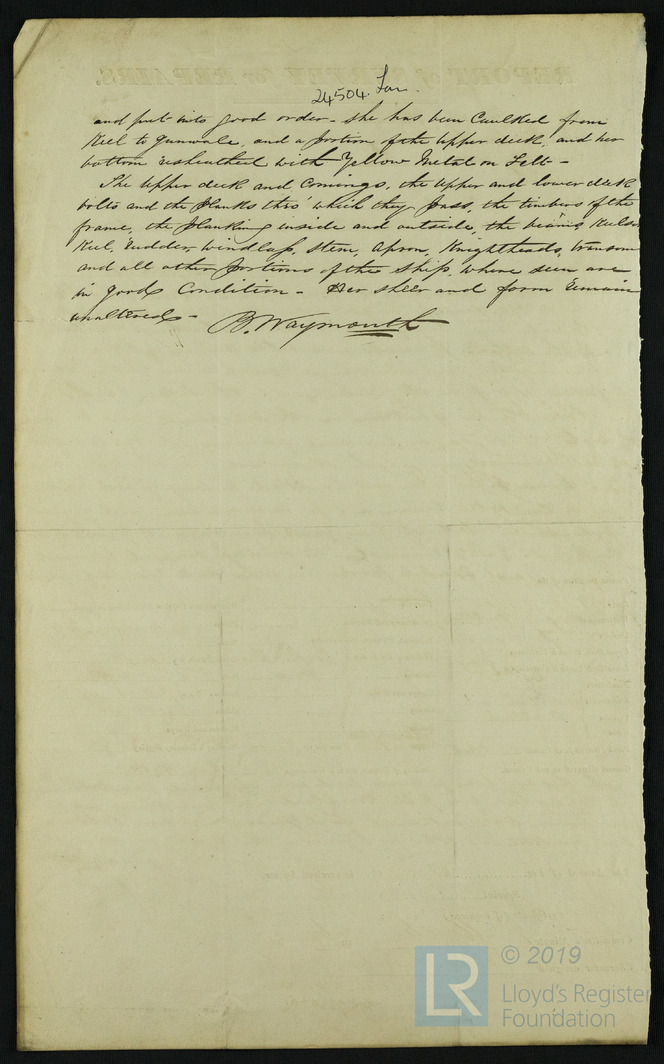 24504 Lon.
and put into good order - She has been Caulked from
Keel to Gunwale, and a portion of the Upper deck, and her
bottom resheathed with Yellow Metal on Felt -
The Upper deck and Comings, the Upper and lower deck
bolts and the planks thro' which they pass, the timbers of the
frame, the planking inside and outside, the beams, Keelson
Keel, Rudder, Windlass, Stem, Apron, Knightheads, transom
and all other portions of the Ship, where seen are
in good Condition - Her sheer and form remain
unaltered -
B. Waymouth
© 2019
LR
Lloyd's Register
Foundation